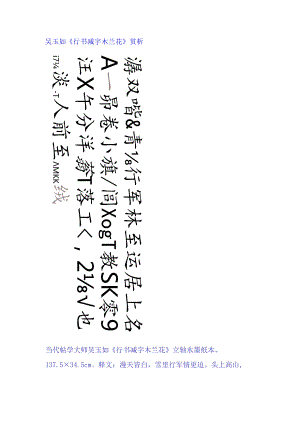 吴玉如《行书减字木兰花》赏析
潺双喈&青⅛行军林至运居上名
A一昴卷小旗/闾XogT教SK零9
汪X午分洋蓊T落工く,2⅛√也
i7¾淡-T人前至ΛMKK绒
当代帖学大师吴玉如《行书减字木兰花》立轴水墨纸本。
137.5×34.5cm。释文:漫天皆白,雪里行军情更迫。头上高山,